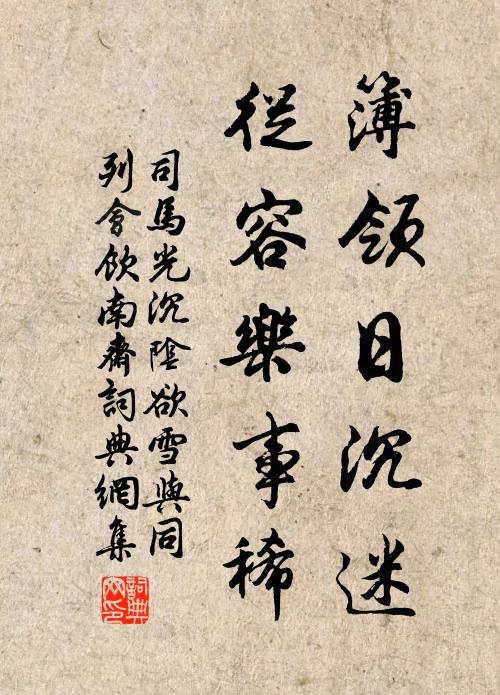 簿領日沉迷
從容樂事稀
司馬光沉陰欲雪與同
列會飲南齋詞典網集
詞典
网印